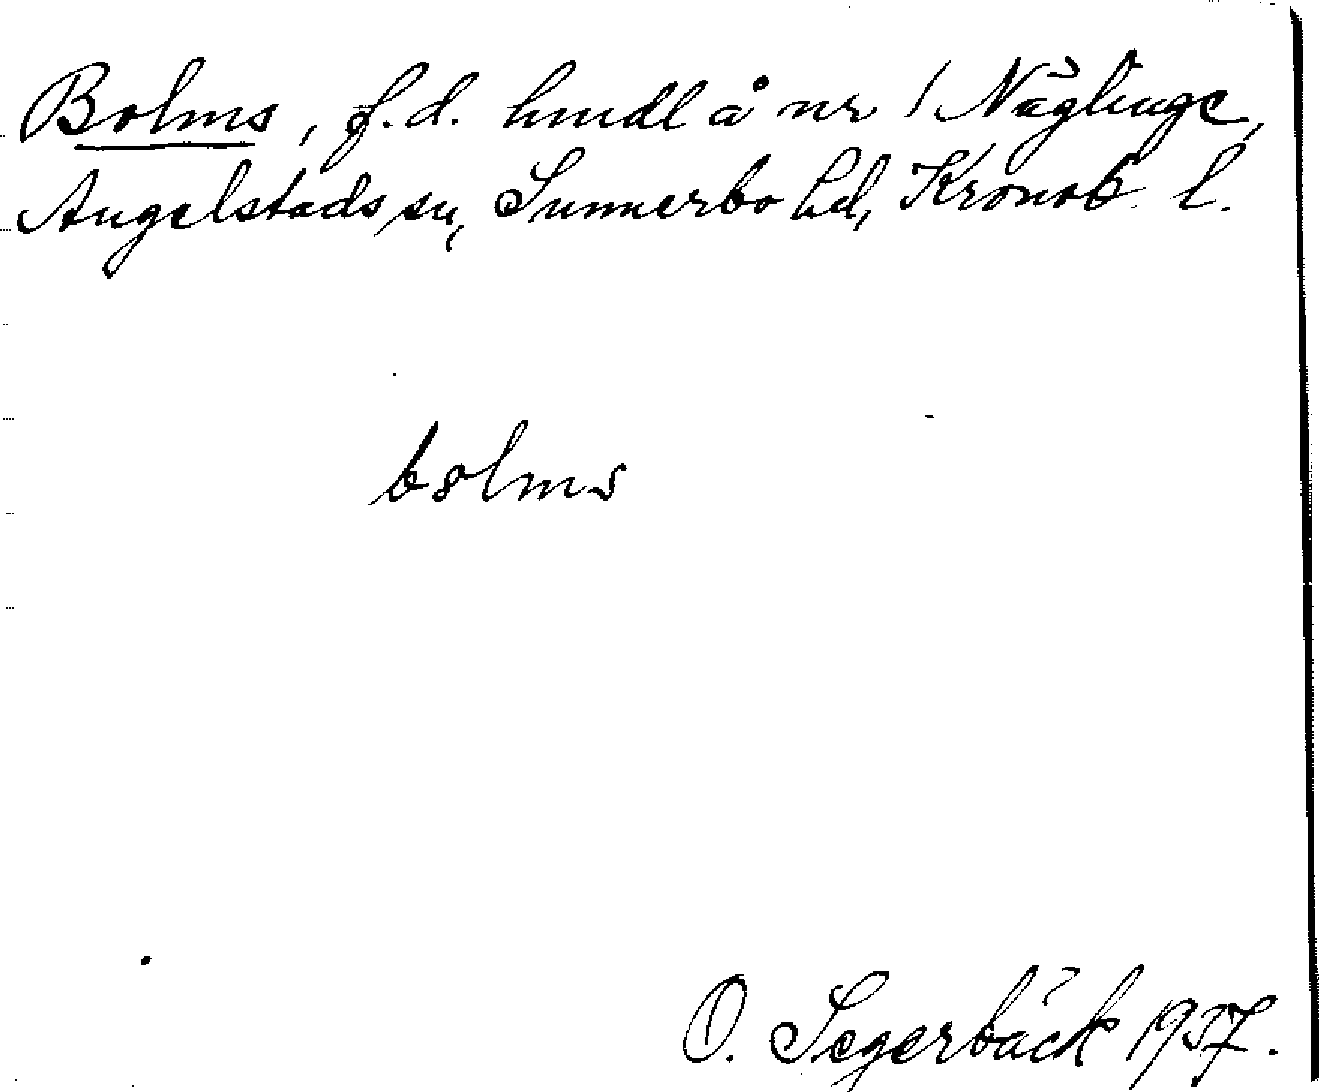 Bolms, f.d. hmdl å nr 1 Näglinge,
Angelstads sn, Sunnerbo hd, Kronob. l.
bolms
O. Segerbäck 1937.